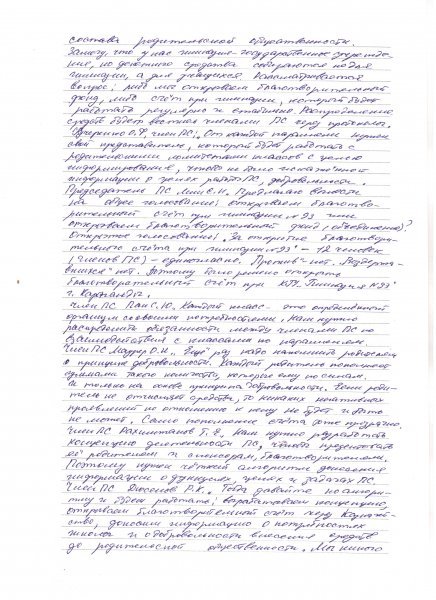 состава родительской общественности.
Замечу, что у нас гимназия-государственное учрежде-
ние, но денежные средства собираются не для
гимназии, а для учащихся. Рассматривается
вопрос: либо мы открываем благотворительный
фонд, либо счёт при гимназии, который будет
работать регулярно и стабильно. Распределение
средств будет вестись членами ПС через протоколы.
О.Ф. член ПС: От каждой параллели нужен
свой представитель, который будет работать с
родительскими комитетами классов с целью
информирования, чтобы не было искажённой
информации о целях работы ПС, добровольности.
Председатель ПС Предлагаю вынести
на общее голосование: открываем благотво-
рительный счёт при гимназии №93 или
открываем благотворительный фонд (объединение)?
Открытое голосование: За открытие благотвори-
тельного счёта при гимназии №93 - 12 человек
(членов ПС) - единогласно. Против - нет. Воздержа-
вшихся - нет. Поэтому было решено открыть
благотворительный счёт при КГУ "Гимназия №93"
г. Караганды.
Член ПС Пак С.Ю. Каждый класс - это определённый
организм со своими потребностями. Нам нужно
распределить обязанности между членами ПС по
взаимодействию с классами по параллелям.
Член ПС О.Н. Ещё раз надо напомнить родителям
о принципе добровольности. Каждый родитель пополняет
суммами такого количества, которое ему по силам,
и только на основе принципа добровольности. Если роди-
тель не отчисляет средства, то никаких негативных
проявлений по отношению к нему не будет и быть
не может. Само пополнение счёта тоже прозрачно.
Член ПС Нам нужно разработать
концепцию деятельности ПС, чтобы представить
её родителям и спонсорам, благотворителям.
Поэтому нужен чёткий алгоритм донесения
информации о функциях, целях и задачах ПС.
Член ПС Дюсенов Р.К. Тогда давайте по алгори-
тму и будем работать: вырабатываем концепцию,
открываем благотворительный счёт через Казначей-
ство, доносим информацию о потребностях
школы и о добровольности внесения средств
до родительской общественности. Мы много